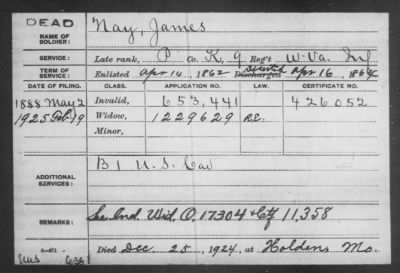 DEAD
NAME OF SOLDIER: Nay, James
SERVICE: Late rank, P Co. K, 9 Reg't W.Va. Inf
TERM OF SERVICE: Enlisted Apr 14, 1862 Discharged Apr 16, 1864
DATE OF FILING. CLASS. APPLICATION NO. LAW. CERTIFICATE NO.
1888 May 2 Invalid, 653,441 426052
1925 Feb 19 Widow, 1229629 R.E.
Minor,
ADDITIONAL SERVICES: B 1 U.S. Cav
REMARKS: See Ind. Wid. O. 17304 + Ctf 11,358
Died Dec. 25, 1924, at Holdens Mo.